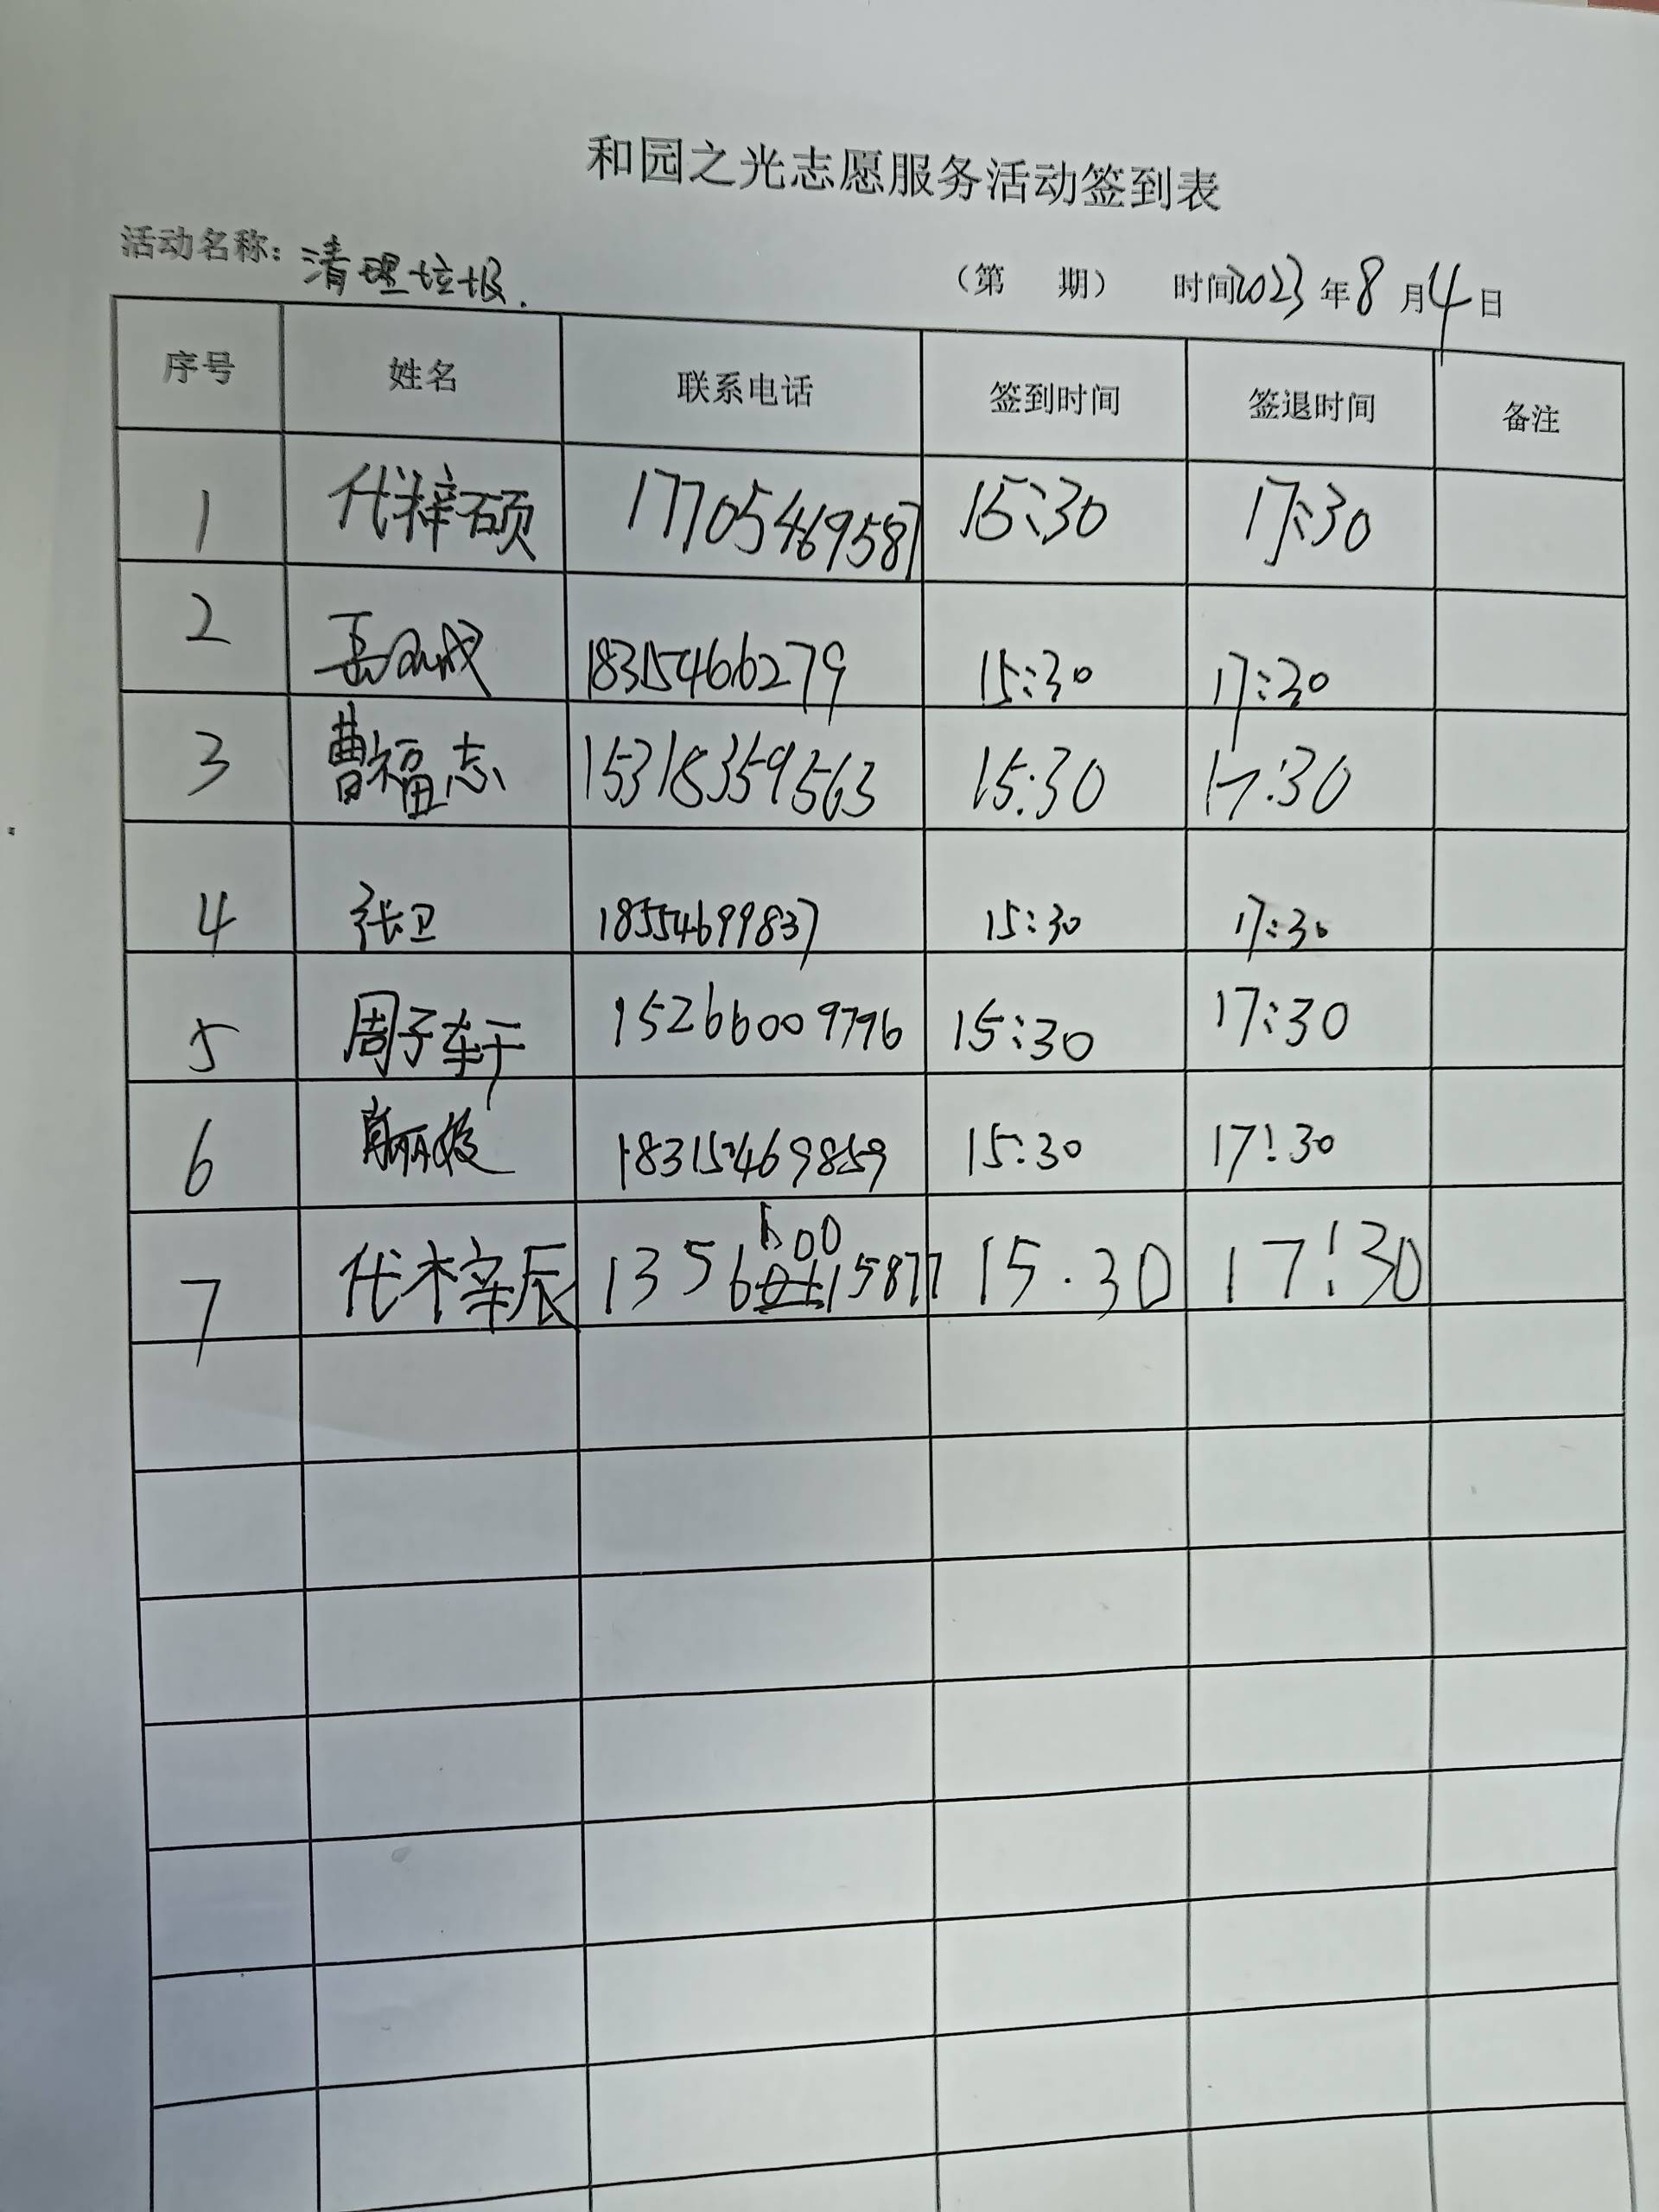 和园之光志愿服务活动签到表
活动名称：清理垃圾.
（第 期） 时间2023年8月4日
序号 姓名 联系电话 签到时间 签退时间 备注
1 代梓硕 17705469587 15:30 17:30
2 18315466279 15:30 17:30
3 曹福志 15318359563 15:30 17:30
4 张卫 18554699837 15:30 17:30
5 周子轩 15266009796 15:30 17:30
6 18315469859 15:30 17:30
7 代梓辰 15:30 17:30